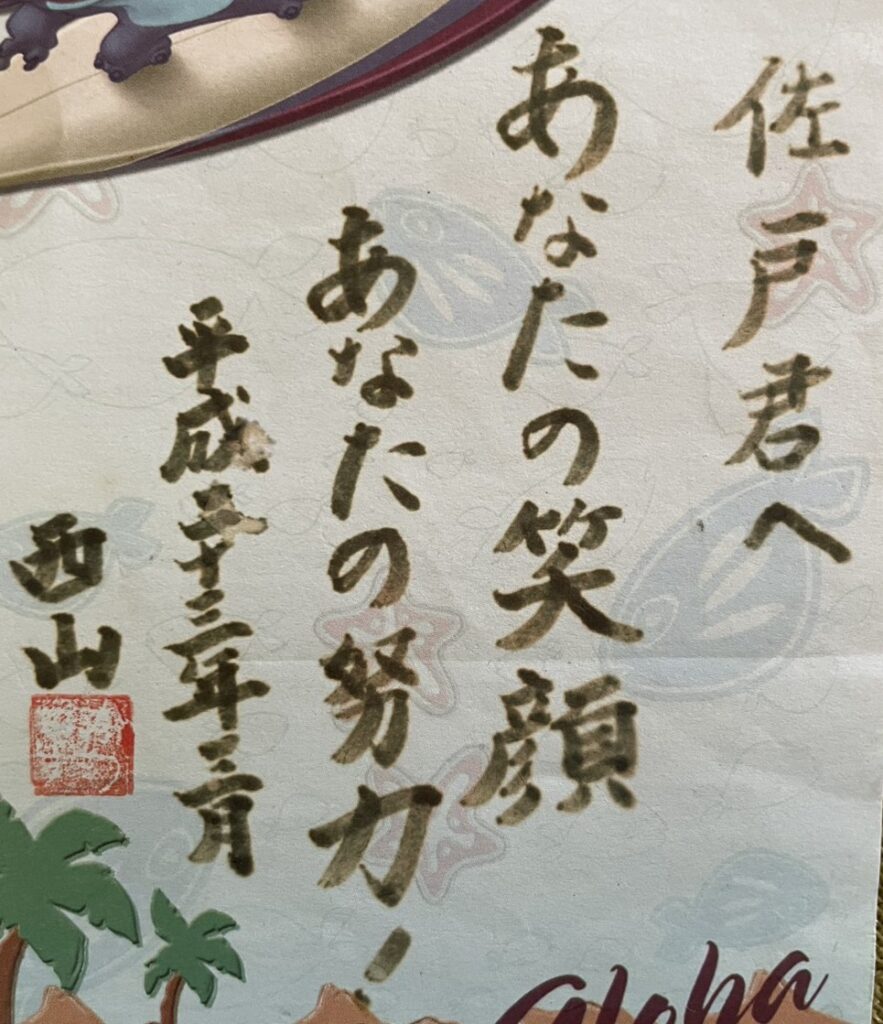 佐戸君へ
あなたの笑顔
あなたの努力!
平成二十三年二月
西山
aloha